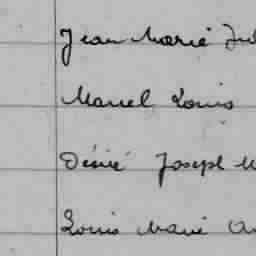 Jean Marie Jul
Marcel Louis
Désiré Joseph M
Louis Marie